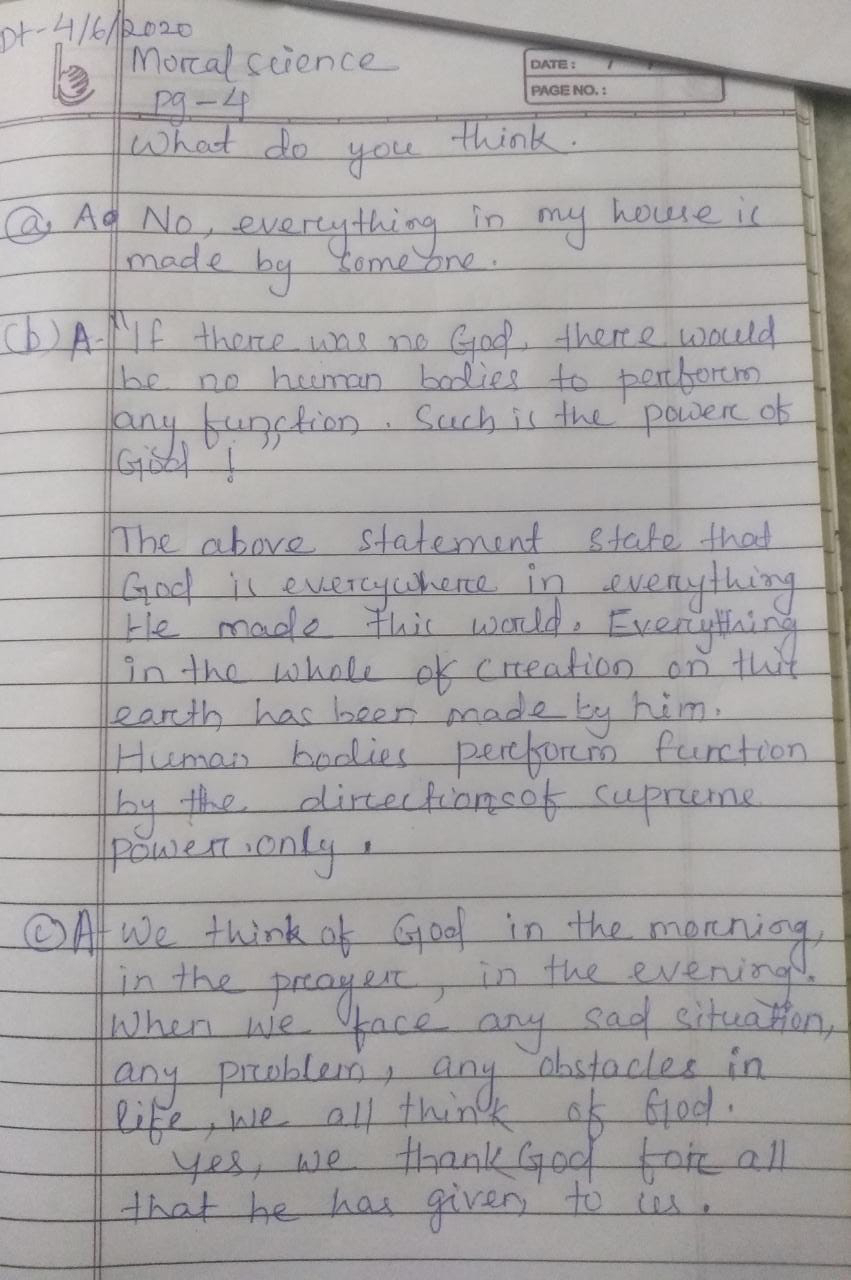 Dt-4/6/2020
Moral science
DATE: / /
pg-4
PAGE NO.:
What do you think.
(a) A No, everything in my house is
made by someone.
(b) A- "If there was no God, there would
be no human bodies to perform
any function. Such is the power of
God"!
The above statement state that
God is everywhere in everything
He made this world. Everything
in the whole of creation on this
earth has been made by him.
Human bodies perform function
by the directions of supreme
power only.
(c) A- We think of God in the morning,
in the prayer, in the evening.
When we face any sad situation,
any problem, any obstacles in
life, we all think of God.
Yes, we thank God for all
that he has given to us.